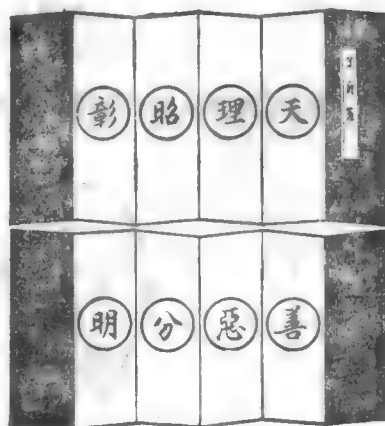 天理昭彰
善惡分明